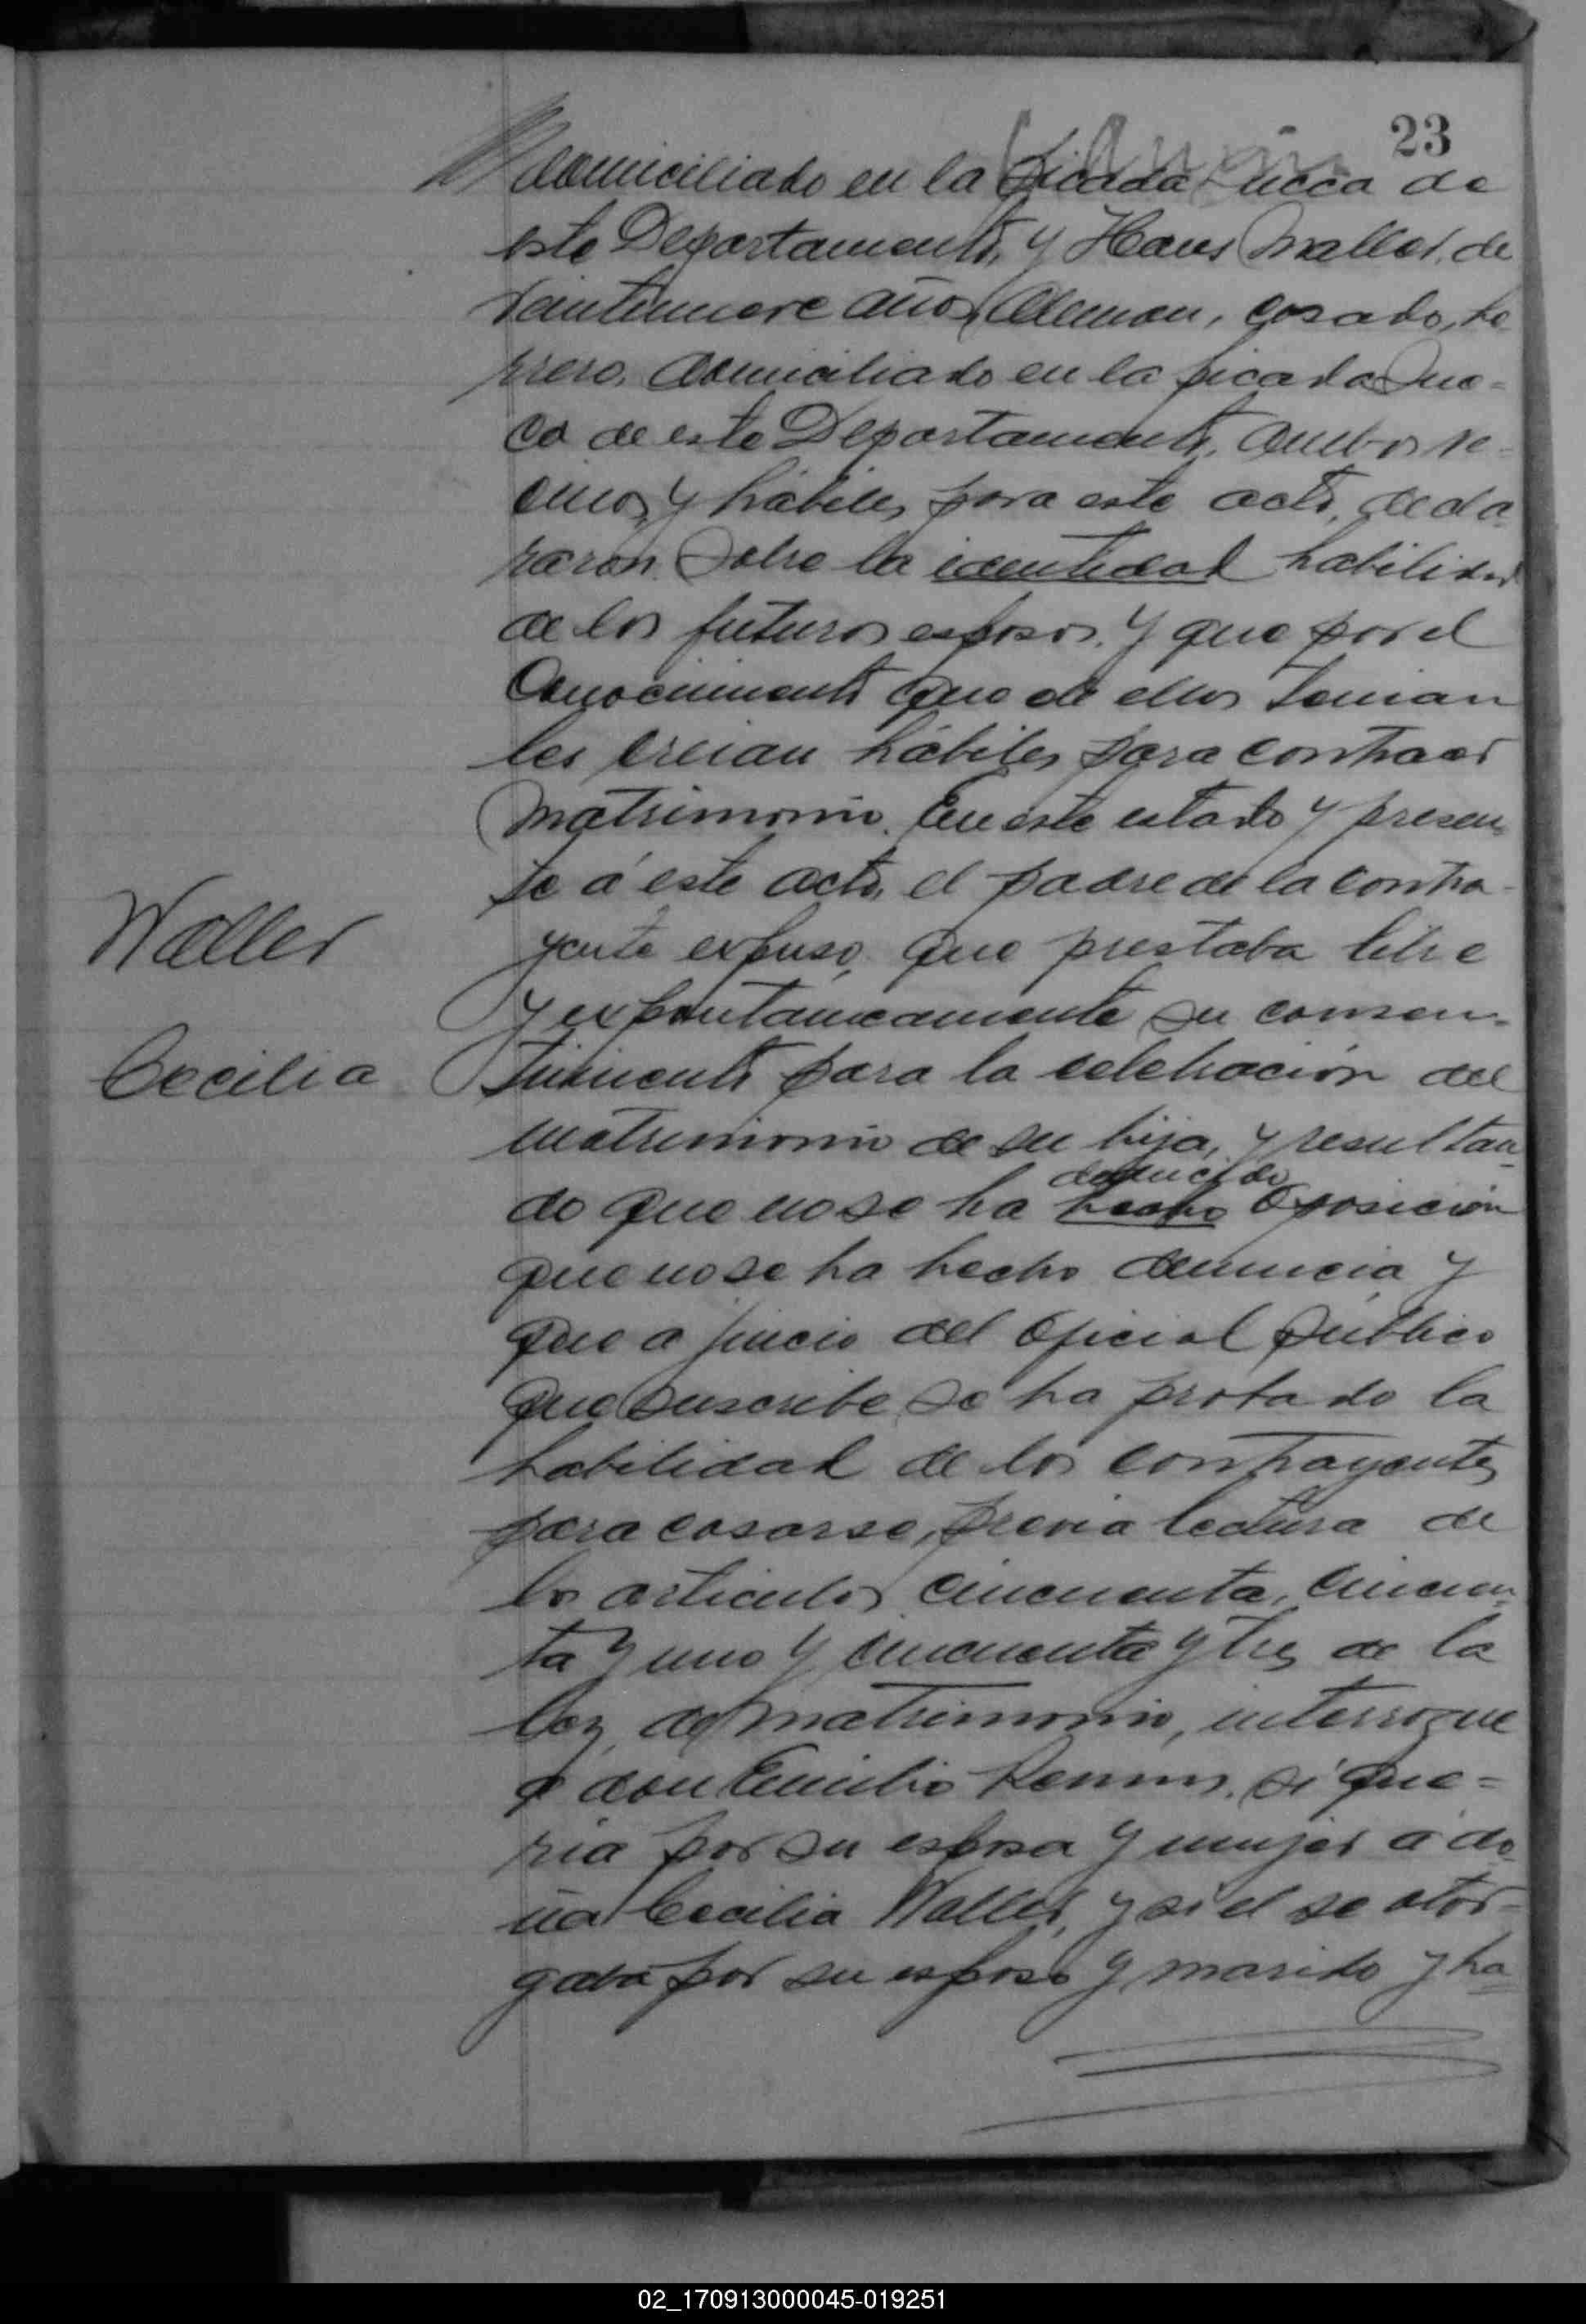 23
domiciliado en la picada sueca de
este Departamento, y Hans Maller, de
veintinueve años, Aleman, casado, he
rrero, domiciliado en la picada Sue=
ca de este Departamento, ambos ve-
cinos y hábiles para este acto, decla
raron sobre la identidad habilidad
de los futuros esposos, y que por el
conocimiento que de ellos tenian
les creian hábiles para contraer
matrimonio. En este estado y presen
te á este acto, el padre de la contra-
Waller
yente expuso, que prestaba libre
y expontaneamente su consen-
Cecilia
timiento para la celebración del
matrimonio de su hija, y resultan
deducido
do que no se ha hecho oposición
que no se ha hecho denuncia y
que a juicio del oficial público
que suscribe, se ha probado la
habilidad de los contrayentes
para casarse, previa lectura de
los articulos cincuenta, cincuen
ta y uno y cincuenta y tres de la
ley de matrimonio, interrogue
a don Emilio si que=
ria por su esposa y mujer a do
ña Cecilia Waller, y si el se otor-
gaba por su esposo y marido y ha
02_170913000045-019251